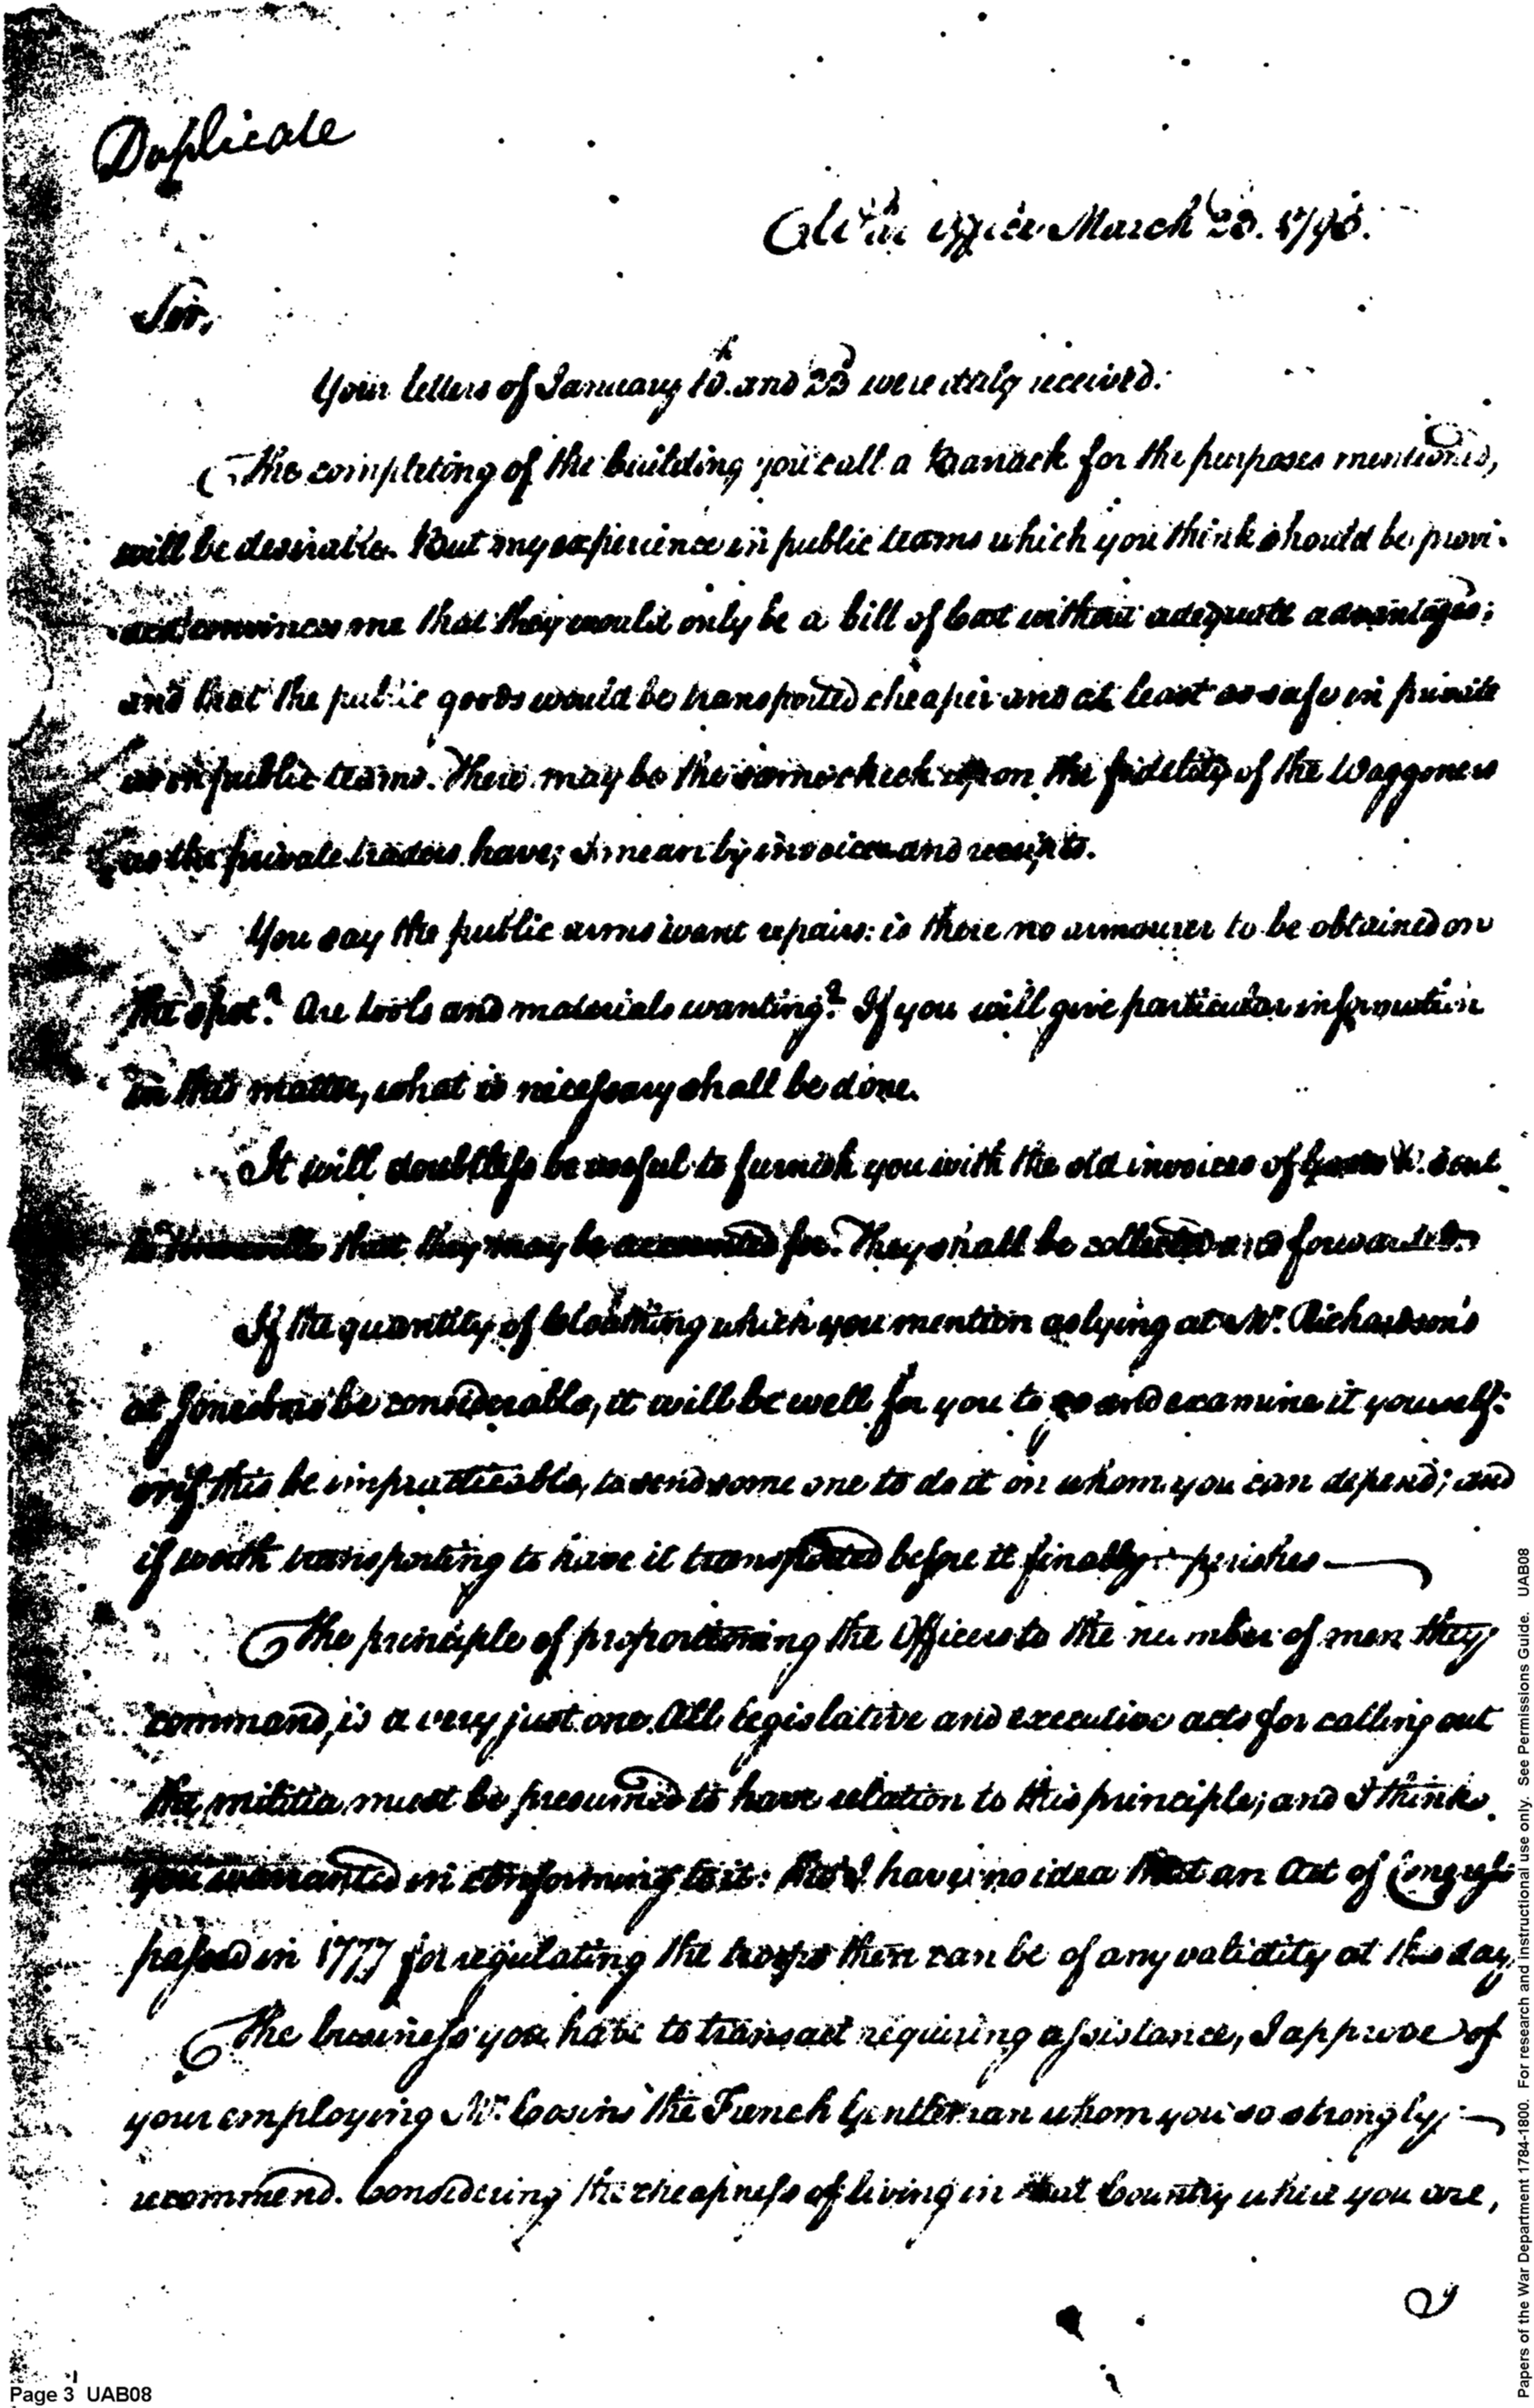 Duplicate
office March 23. 1795.
Sir,
Your letters of January 10th. and 23d were duly received.
The completing of the building you call a Barrack for the purposes mentioned,
will be desirable. But my experience in public teams which you think should be provi-
ded convinces me that they would only be a bill of cost without adequate advantages;
and that the public goods would be transported cheaper and at least as safe in private
as in public teams. There may be the same check upon the fidelity of the Waggoners
as the private traders have; I mean by invoices and receipts.
You say the public arms want repairs: is there no armourer to be obtained on
the spot? Are tools and materials wanting? If you will give particular information
in this matter, what is necessary shall be done.
It will doubtless be useful to furnish you with the old invoices of Goods &c. sent
to Knoxville that they may be accounted for. They shall be collected and forwarded.
If the quantity of Cloathing which you mention as lying at Mr. Richardson's
at Jonesboro' be considerable, it will be well for you to go and examine it yourself:
or if this be impracticable, to send some one to do it on whom you can depend; and
if worth transporting to have it transported before it finally perishes
The principle of proportioning the Officers to the number of men they
command, is a very just one. All legislative and executive acts for calling out
the militia must be presumed to have relation to this principle; and I think
you warranted in conforming to it: But I have no idea that an Act of Congress
passed in 1777 for regulating the troops then can be of any validity at this day.
The business you have to transact requiring assistance, I approve of
your employing Mr. Cosins the French Gentleman whom you so strongly
recommend. Considering the cheapness of living in that Country where you are,
Page 3 UAB08
Papers of the War Department 1784-1800. For research and instructional use only. See Permissions Guide. UAB08